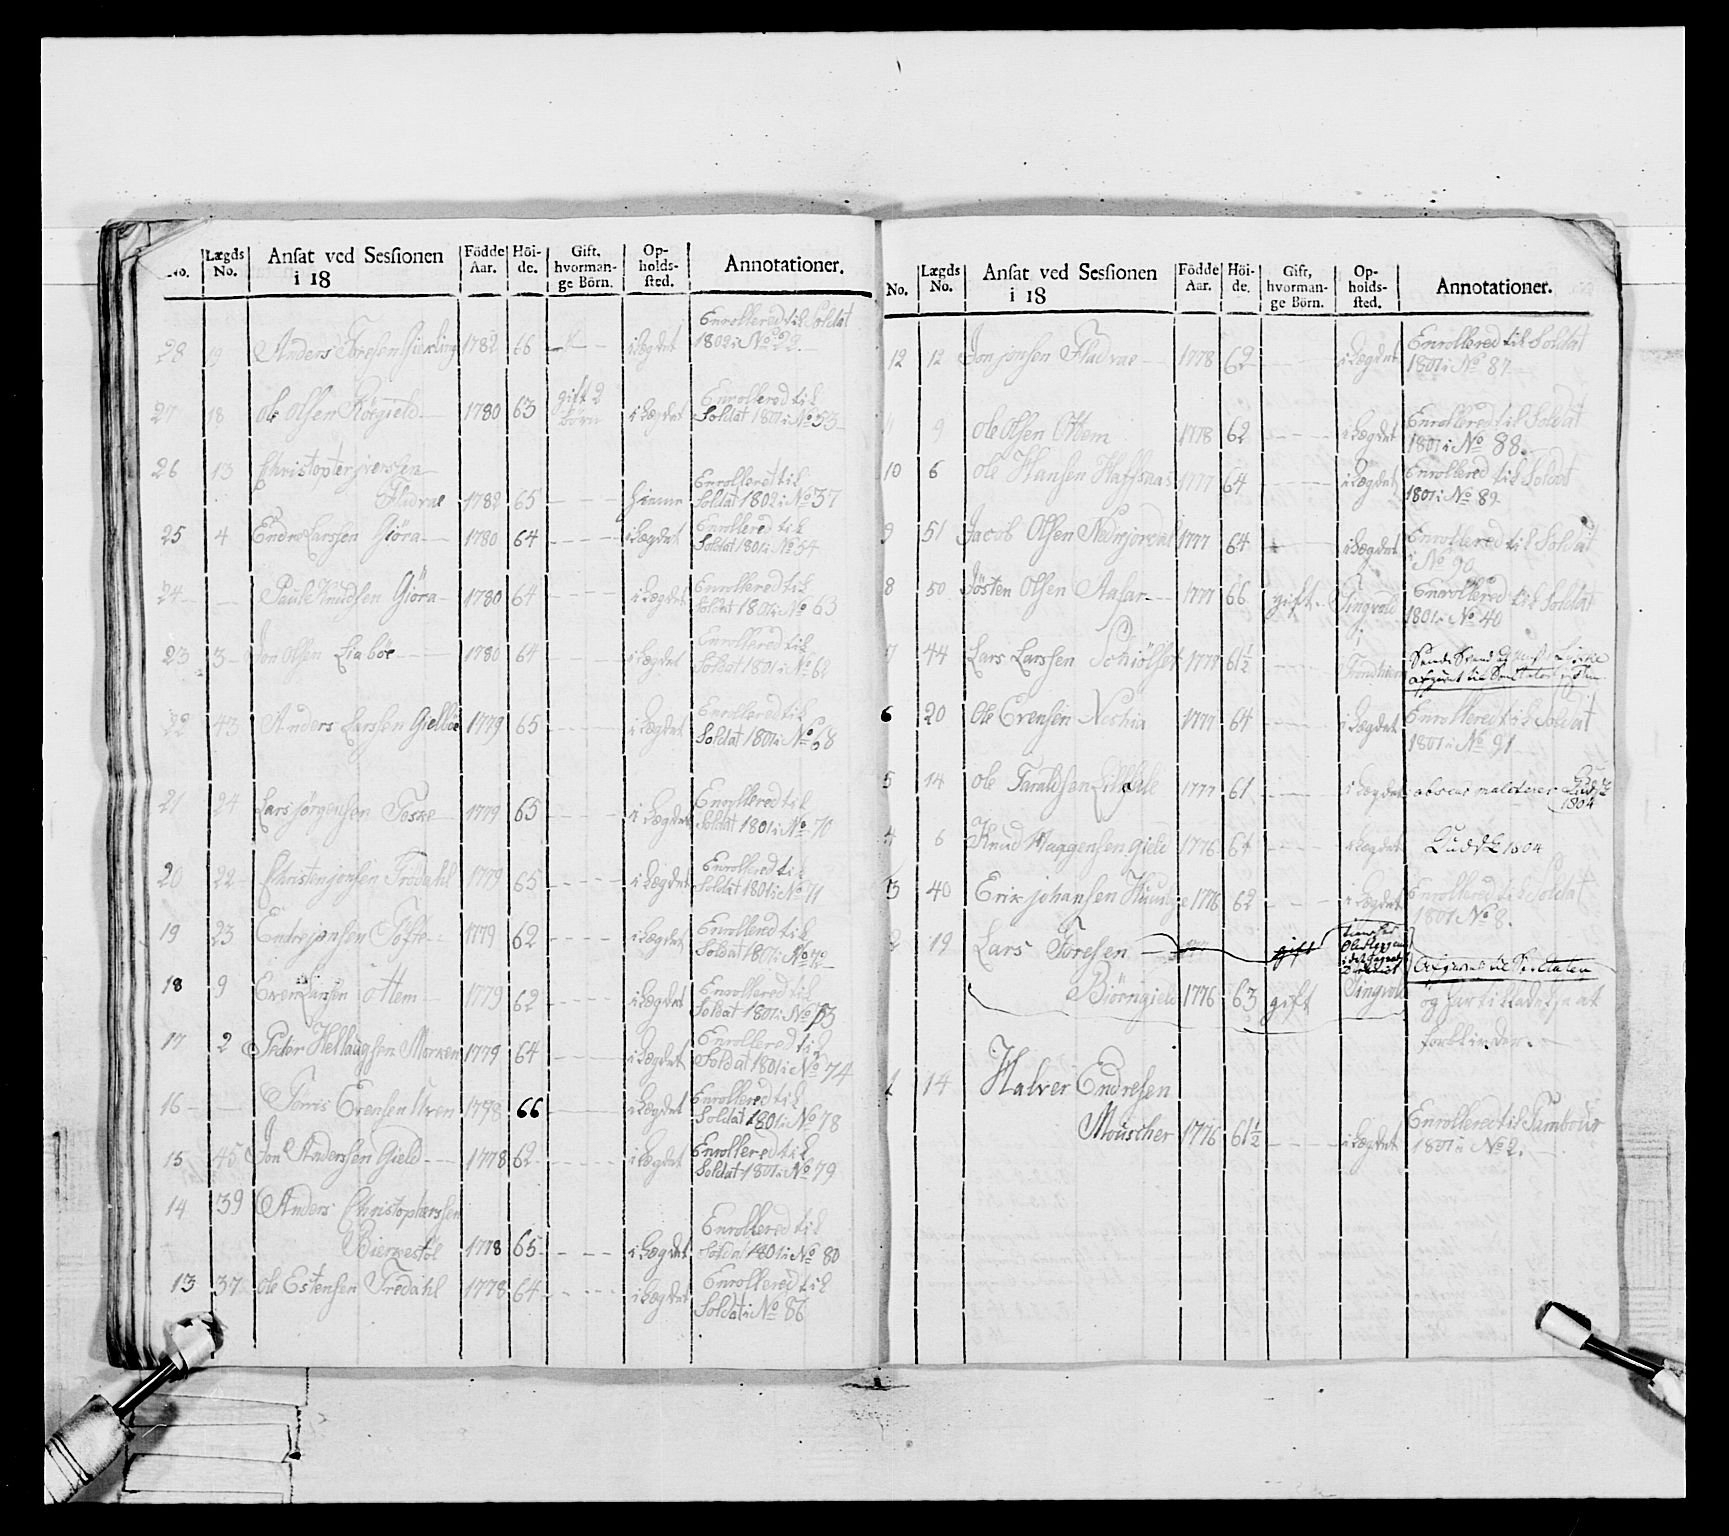 No. Lægds No. Ansat ved Sessionen i 18 Födde Aar. Höi- de. Gift, hvorman- ge Börn. Op- holds- sted. Annotationer.
28 19 Anders Toresen 1782 66 i Lægdet Enrollered til Soldat
1802 i No 29
27 18 Ole Olsen 1780 63 gift 2 Börn i Lægdet Enrollered til
Soldat 1801 i No 53
26 13 Christopher Iversen
Fladvae 1782 65 hiemme Enrollered til
Soldat 1802 i No 37
25 4 Endre Larssen Giöra 1780 64 i Lægdet Enrollered til
Soldat 1801 i No 54
24 Paul Knudsen Giöra 1780 64 i Lægdet Enrollered til
Soldat 1801 i No 63
23 3 Jon Olsen Liaböe 1780 64 i Lægdet Enrollered til
Soldat 1801 i No 62
22 43 Anders Larssen 1779 65 i Lægdet Enrollered til
Soldat 1801 i No 68
21 24 Lars Jörgensen Toske 1779 65 i Lægdet Enrollered til
Soldat 1801 i No 70
20 22 Christen Jonsen Tredahl 1779 65 i Lægdet Enrollered til
Soldat 1801 i No 71
19 23 Endre Jonsen Tofte 1779 62 i Lægdet Enrollered til
Soldat 1801 i No 72
18 9 Even Larsen Ottem 1779 62 i Lægdet Enrollered til
Soldat 1801 i No 73
17 2 Peder Hellaugsen Morken 1779 64 i Lægdet Enrollered til
Soldat 1801 i No 74
16 Törris Evensen 1778 66 i Lægdet Enrollered til
Soldat 1801 i No 78
15 45 Jon Anderssen Gield 1778 62 i Lægdet Enrollered til
Soldat 1801 i No 79
14 39 Anders Christophersen
1778 65 i Lægdet Enrollered til
Soldat 1801 i No 80
13 37 Ole Estensen Tredahl 1778 64 i Lægdet Enrollered til
Soldat i No 86
No. Lægds No. Ansat ved Sessionen i 18 Födde Aar. Höi- de. Gift, hvorman- ge Börn. Op- holds- sted. Annotationer.
12 12 Jon Jonsen Fladvae 1778 62 i Lægdet Enrollered til Soldat
1801 i No 87
11 9 Ole Olsen Ottem 1778 62 i Lægdet Enrollered til Soldat
1801 i No 88.
10 6 Ole Hansen Haffsnas 1777 64 i Lægdet Enrollered til Soldat
1801 i No 89
9 51 Jacob Olsen Nedrjordal 1777 64 i Lægdet Enrollered til Soldat
i No 90
8 50 Jösten Olsen 1777 66 gift Tingvold Enrollered til Soldat
1801 i No 40
7 44 Lars Larssen Schiölset 1777 61½ Trondhiem
6 20 Ole Evensen Neshia 1777 64 i Lægdet Enrollered til Soldat
1801 i No 91
5 14 Ole Taraldsen Lilldale 1777 61 i Lægdet
1804
4 6 Knud Haggensen Gield 1776 64 i Lægdet 1804
3 40 Erik Johansen 1776 62 i Lægdet Enrollered til Soldat
1801 No 8.
2 19 Lars Toresen gift
Biörngield 1776 63 gift Tingvold og har tilladelse at
1 14 Halver Endresen
Mouscher 1776 61½ i Lægdet Enrollered til Tambour
1801 i No 2.